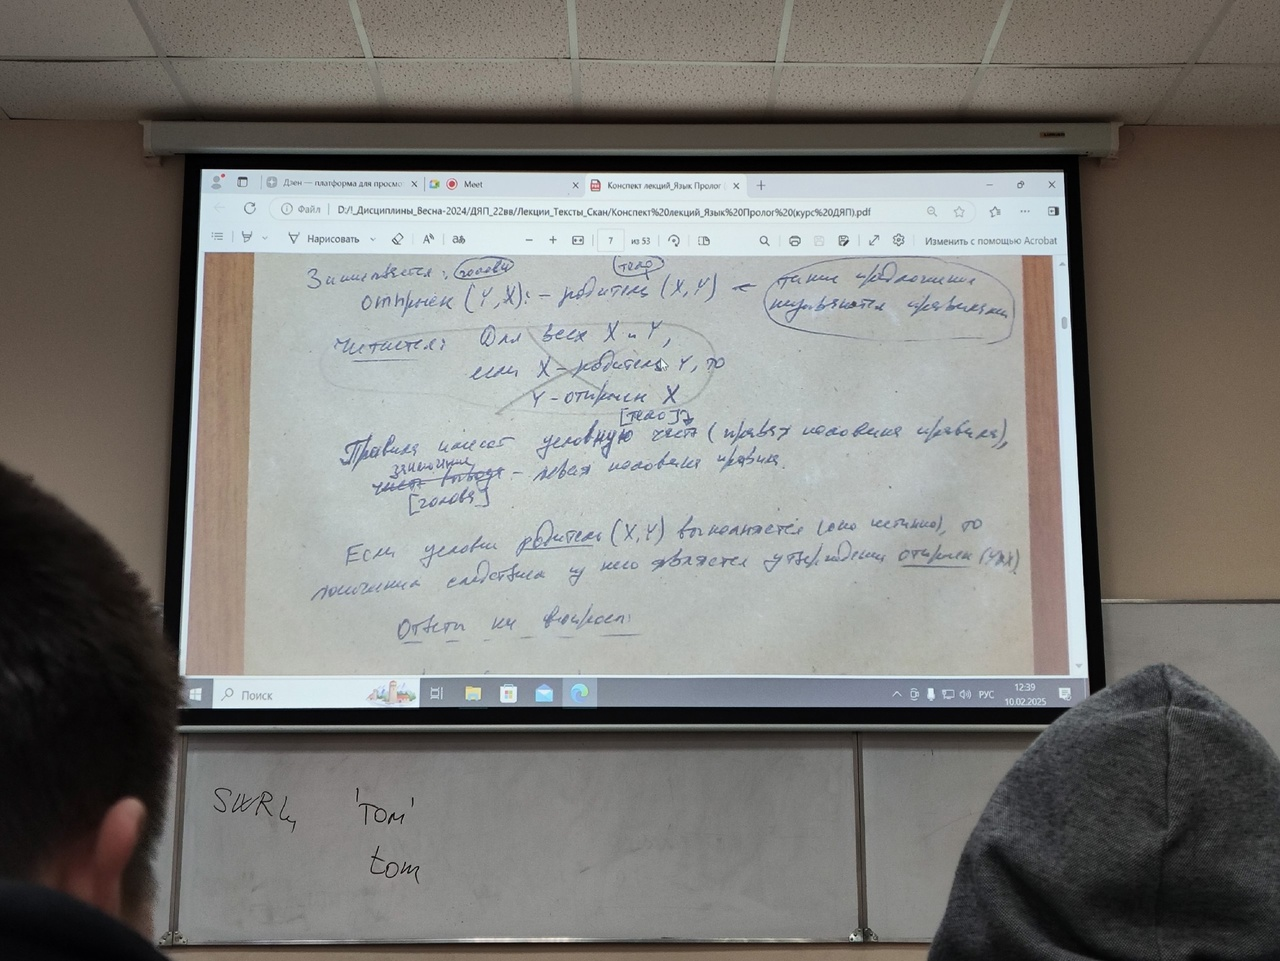 Дзен — платформа для просмо
Meet
Конспект лекций_Язык Пролог
Файл
D:/!_Дисциплины_Весна-2024/ДЯП_22вв/Лекции_Тексты_Скан/Конспект%20лекций_Язык%20Пролог%20(курс%20ДЯП).pdf
Нарисовать
7 из 53
Изменить с помощью Acrobat
Записывается: голова тело
отпрыск (Y,X):- родитель (X,Y) ← такие предложения
называются правилами
Читается: Для всех X и Y,
если X - родитель Y, то
Y - отпрыск X
[тело]
Правила имеют условную часть (правая половина правила),
заключение
часть вывода - левая половина правила.
[голова]
Если условие родитель (X,Y) выполняется (оно истинно), то
логическим следствием из него является утверждение отпрыск (Y,X)
Ответы на вопросы:
Поиск
РУС
12:39
10.02.2025
SWRL 'Tom'
tom